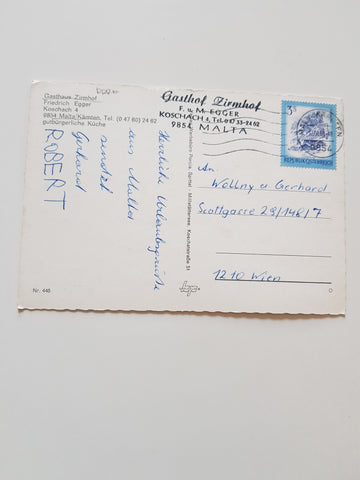 Gasthaus Zirmhof
Friedrich Egger
Koschach 4
9854 Malta/Kärnten, Tel. (0 47 60) 24 62
gutbürgerliche Küche
Gasthof Zirmhof
F. u. M. EGGER
KOSCHACH 4 Tel. 047 33-24 62
9854 MALTA
3 S
REPUBLIK ÖSTERREICH
Herzliche Urlaubsgrüße
aus Malta
sendet
Gerhard
ROBERT
An:
Wollny u Gerhard
Scottgasse 29/148/7
1210 Wien
Nr. 446